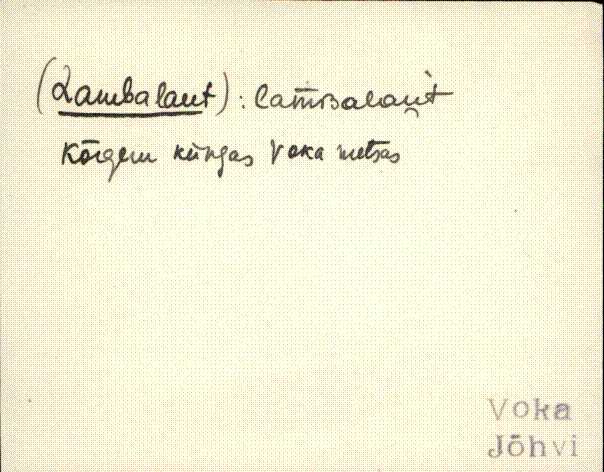 (Lambalaut) : lam̄ʙalau̯t
Kõrgem küngas Voka metsas
Voka
Jõhvi